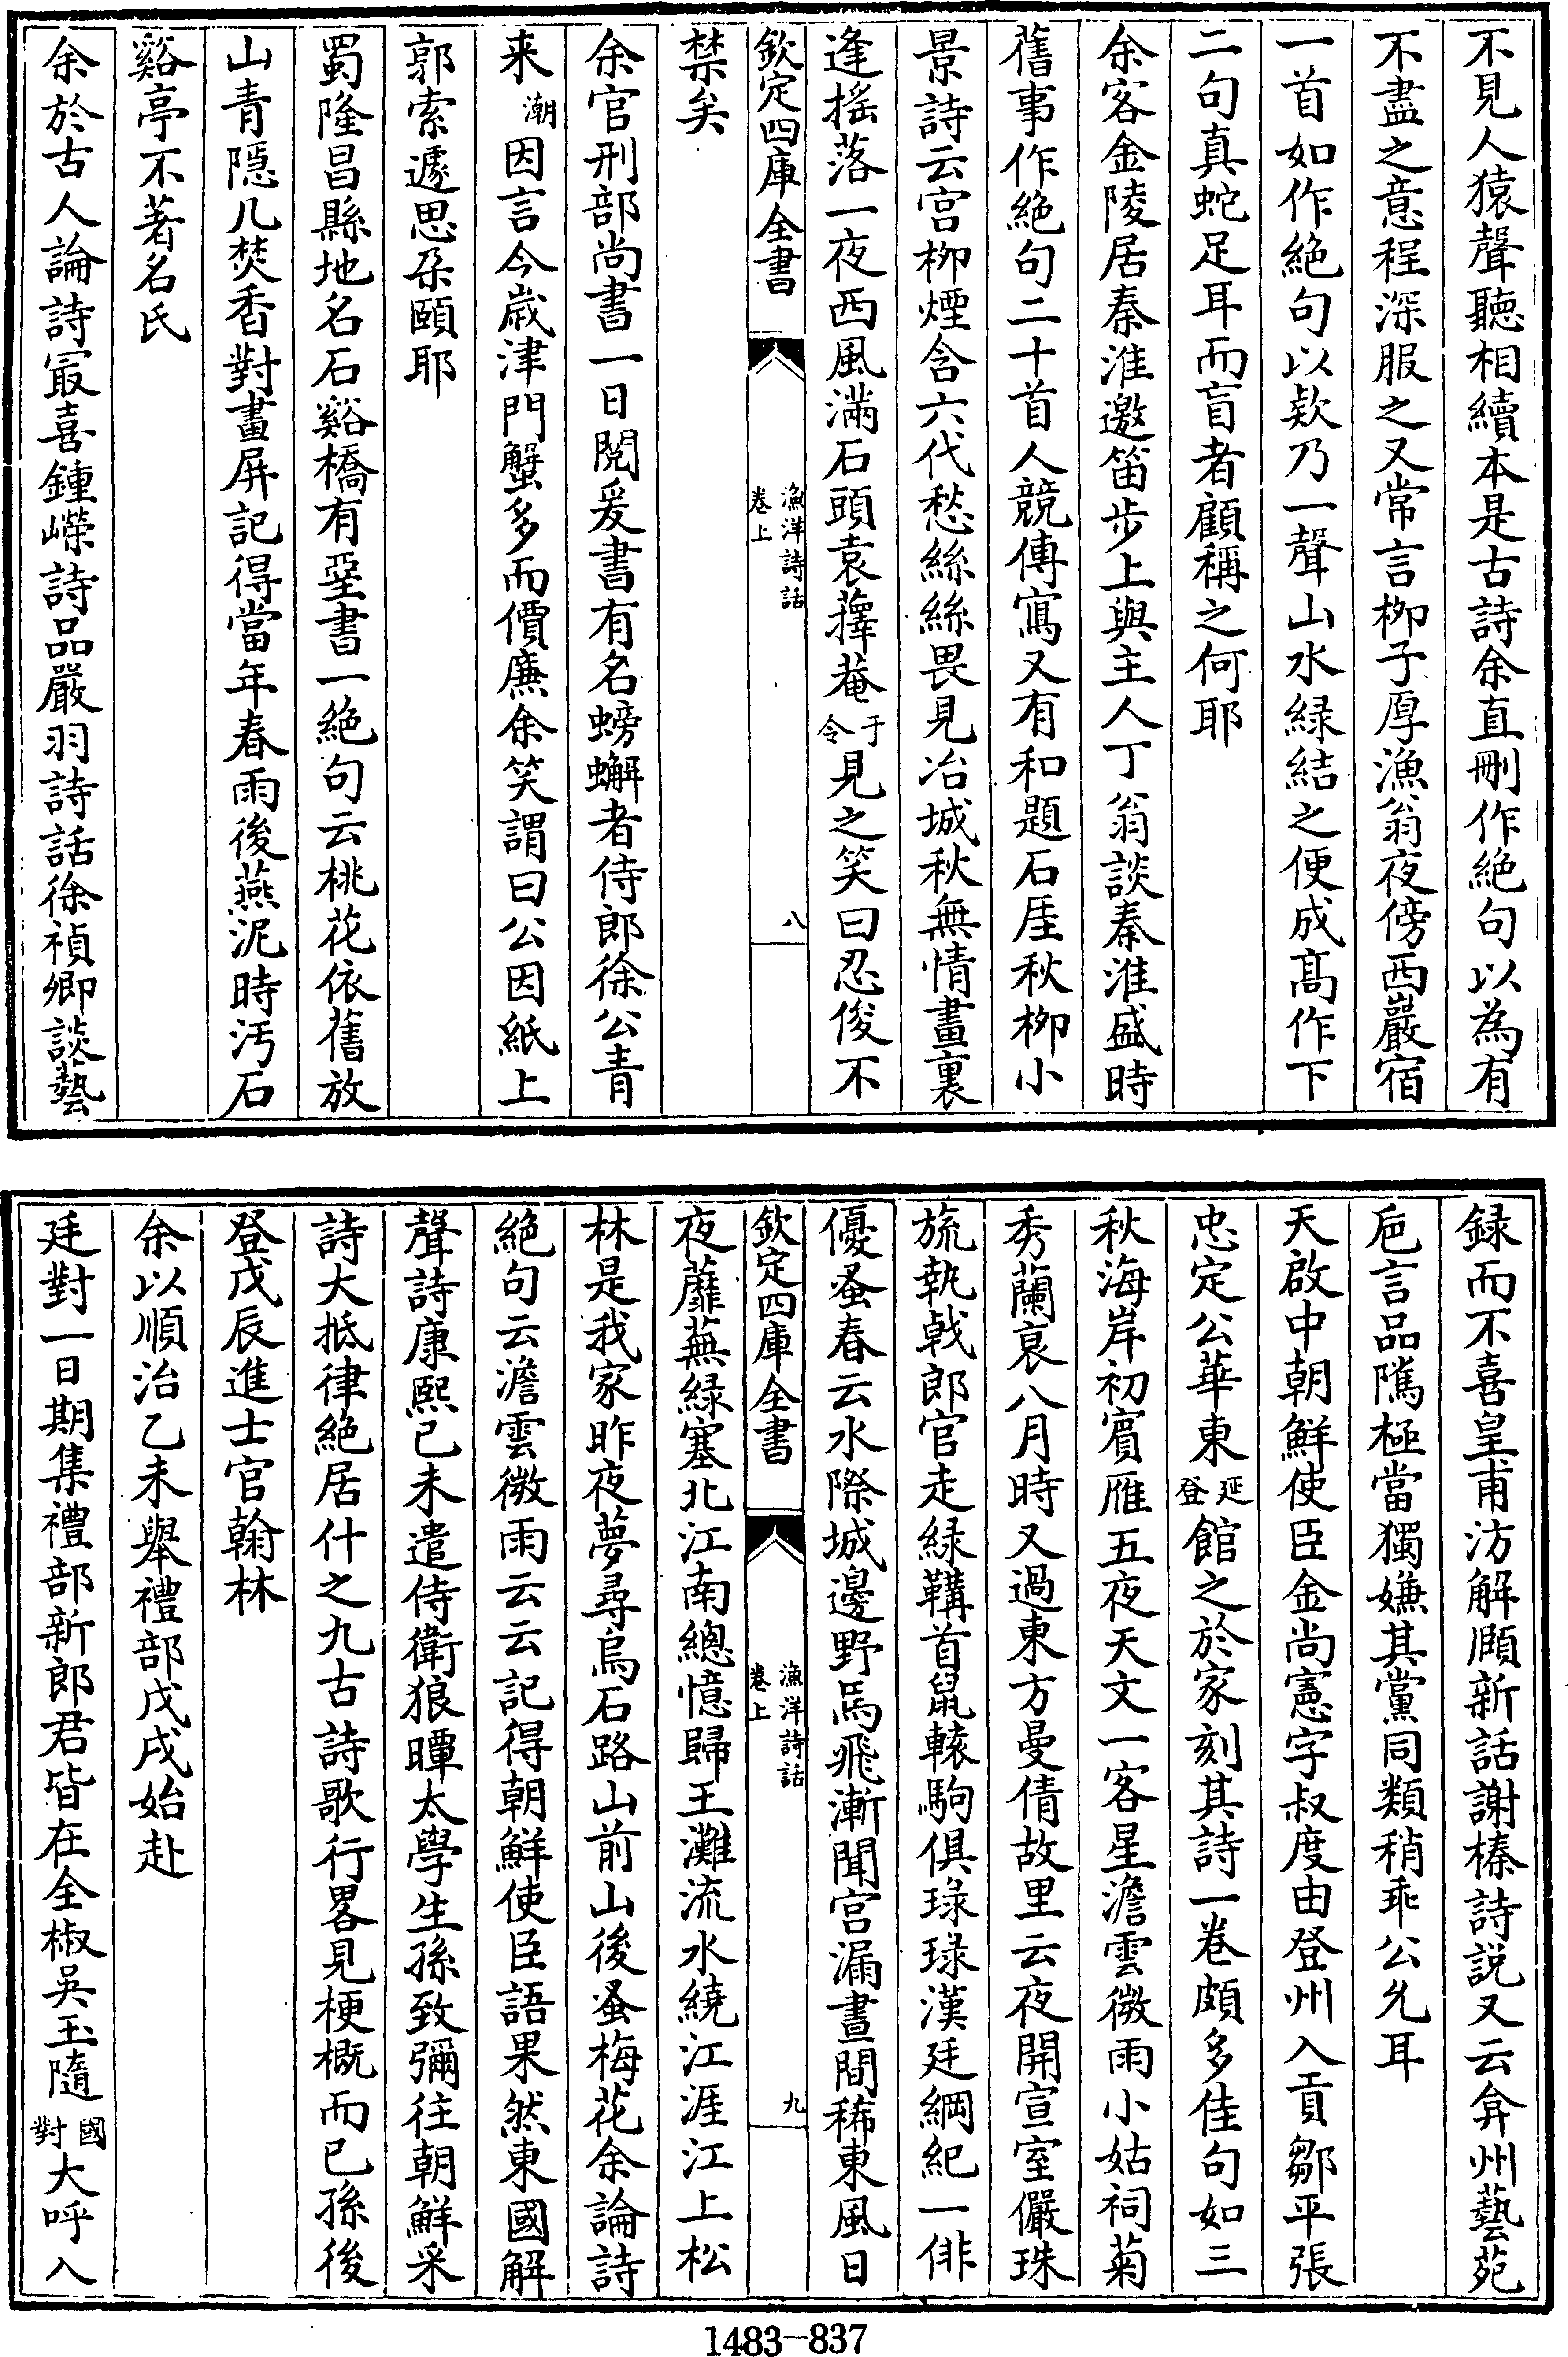 不見人猿聲聽相續本是古詩余直刪作絶句以為有
不盡之意程深服之又常言柳子厚漁翁夜傍西巖宿
一首如作絶句以欵乃一聲山水緑結之便成髙作下
二句真蛇足耳而盲者顧稱之何耶
余客金陵居秦淮邀笛步上與主人丁翁談秦淮盛時
舊事作絶句二十首人競傳寫又有和題石厓秋柳小
景詩云宫柳煙含六代愁絲絲畏見冶城秋無情畫裏
逢揺落一夜西風滿石頭袁蘀菴于令見之笑曰忍俊不
欽定四庫全書
漁洋詩話
卷上
八
禁矣
余官刑部尚書一日閲爰書有名螃蠏者侍郎徐公青
来潮因言今歳津門蟹多而價廉余笑謂曰公因紙上
郭索遽思朶頤耶
蜀隆昌縣地名石谿橋有堊書一絶句云桃花依舊放
山青隠几焚香對畫屏記得當年春雨後燕泥時汚石
谿亭不著名氏
余於古人論詩冣喜鍾嶸詩品嚴羽詩話徐禎卿談藝
録而不喜皇甫汸解頤新話謝榛詩説又云弇州藝苑
巵言品隲極當獨嫌其黨同類稍乖公允耳
天啟中朝鮮使臣金尚憲字叔度由登州入貢鄒平張
忠定公華東延登館之於家刻其詩一巻頗多佳句如三
秋海岸初賔雁五夜天文一客星澹雲微雨小姑祠菊
秀蘭衰八月時又過東方曼倩故里云夜開宣室儼珠
旒執㦸郎官走緑鞲首䑕轅駒俱琭琭漢廷綱紀一俳
優蚤春云水際城邊野馬飛漸聞宫漏晝間稀東風日
欽定四庫全書
漁洋詩話
卷上
九
夜蘼蕪緑塞北江南總憶歸王灘流水繞江涯江上松
林是我家昨夜夢尋烏石路山前山後蚤梅花余論詩
絶句云澹雲微雨云云記得朝鮮使臣語果然東國解
聲詩康熙已未遣侍衛狼瞫太學生孫致彌往朝鮮采
詩大抵律絶居什之九古詩歌行畧見梗概而已孫後
登戊辰進士官翰林
余以順治乙未舉禮部戊戌始赴
廷對一日期集禮部新郎君皆在全椒吳玉隨國對大呼入
1483-837